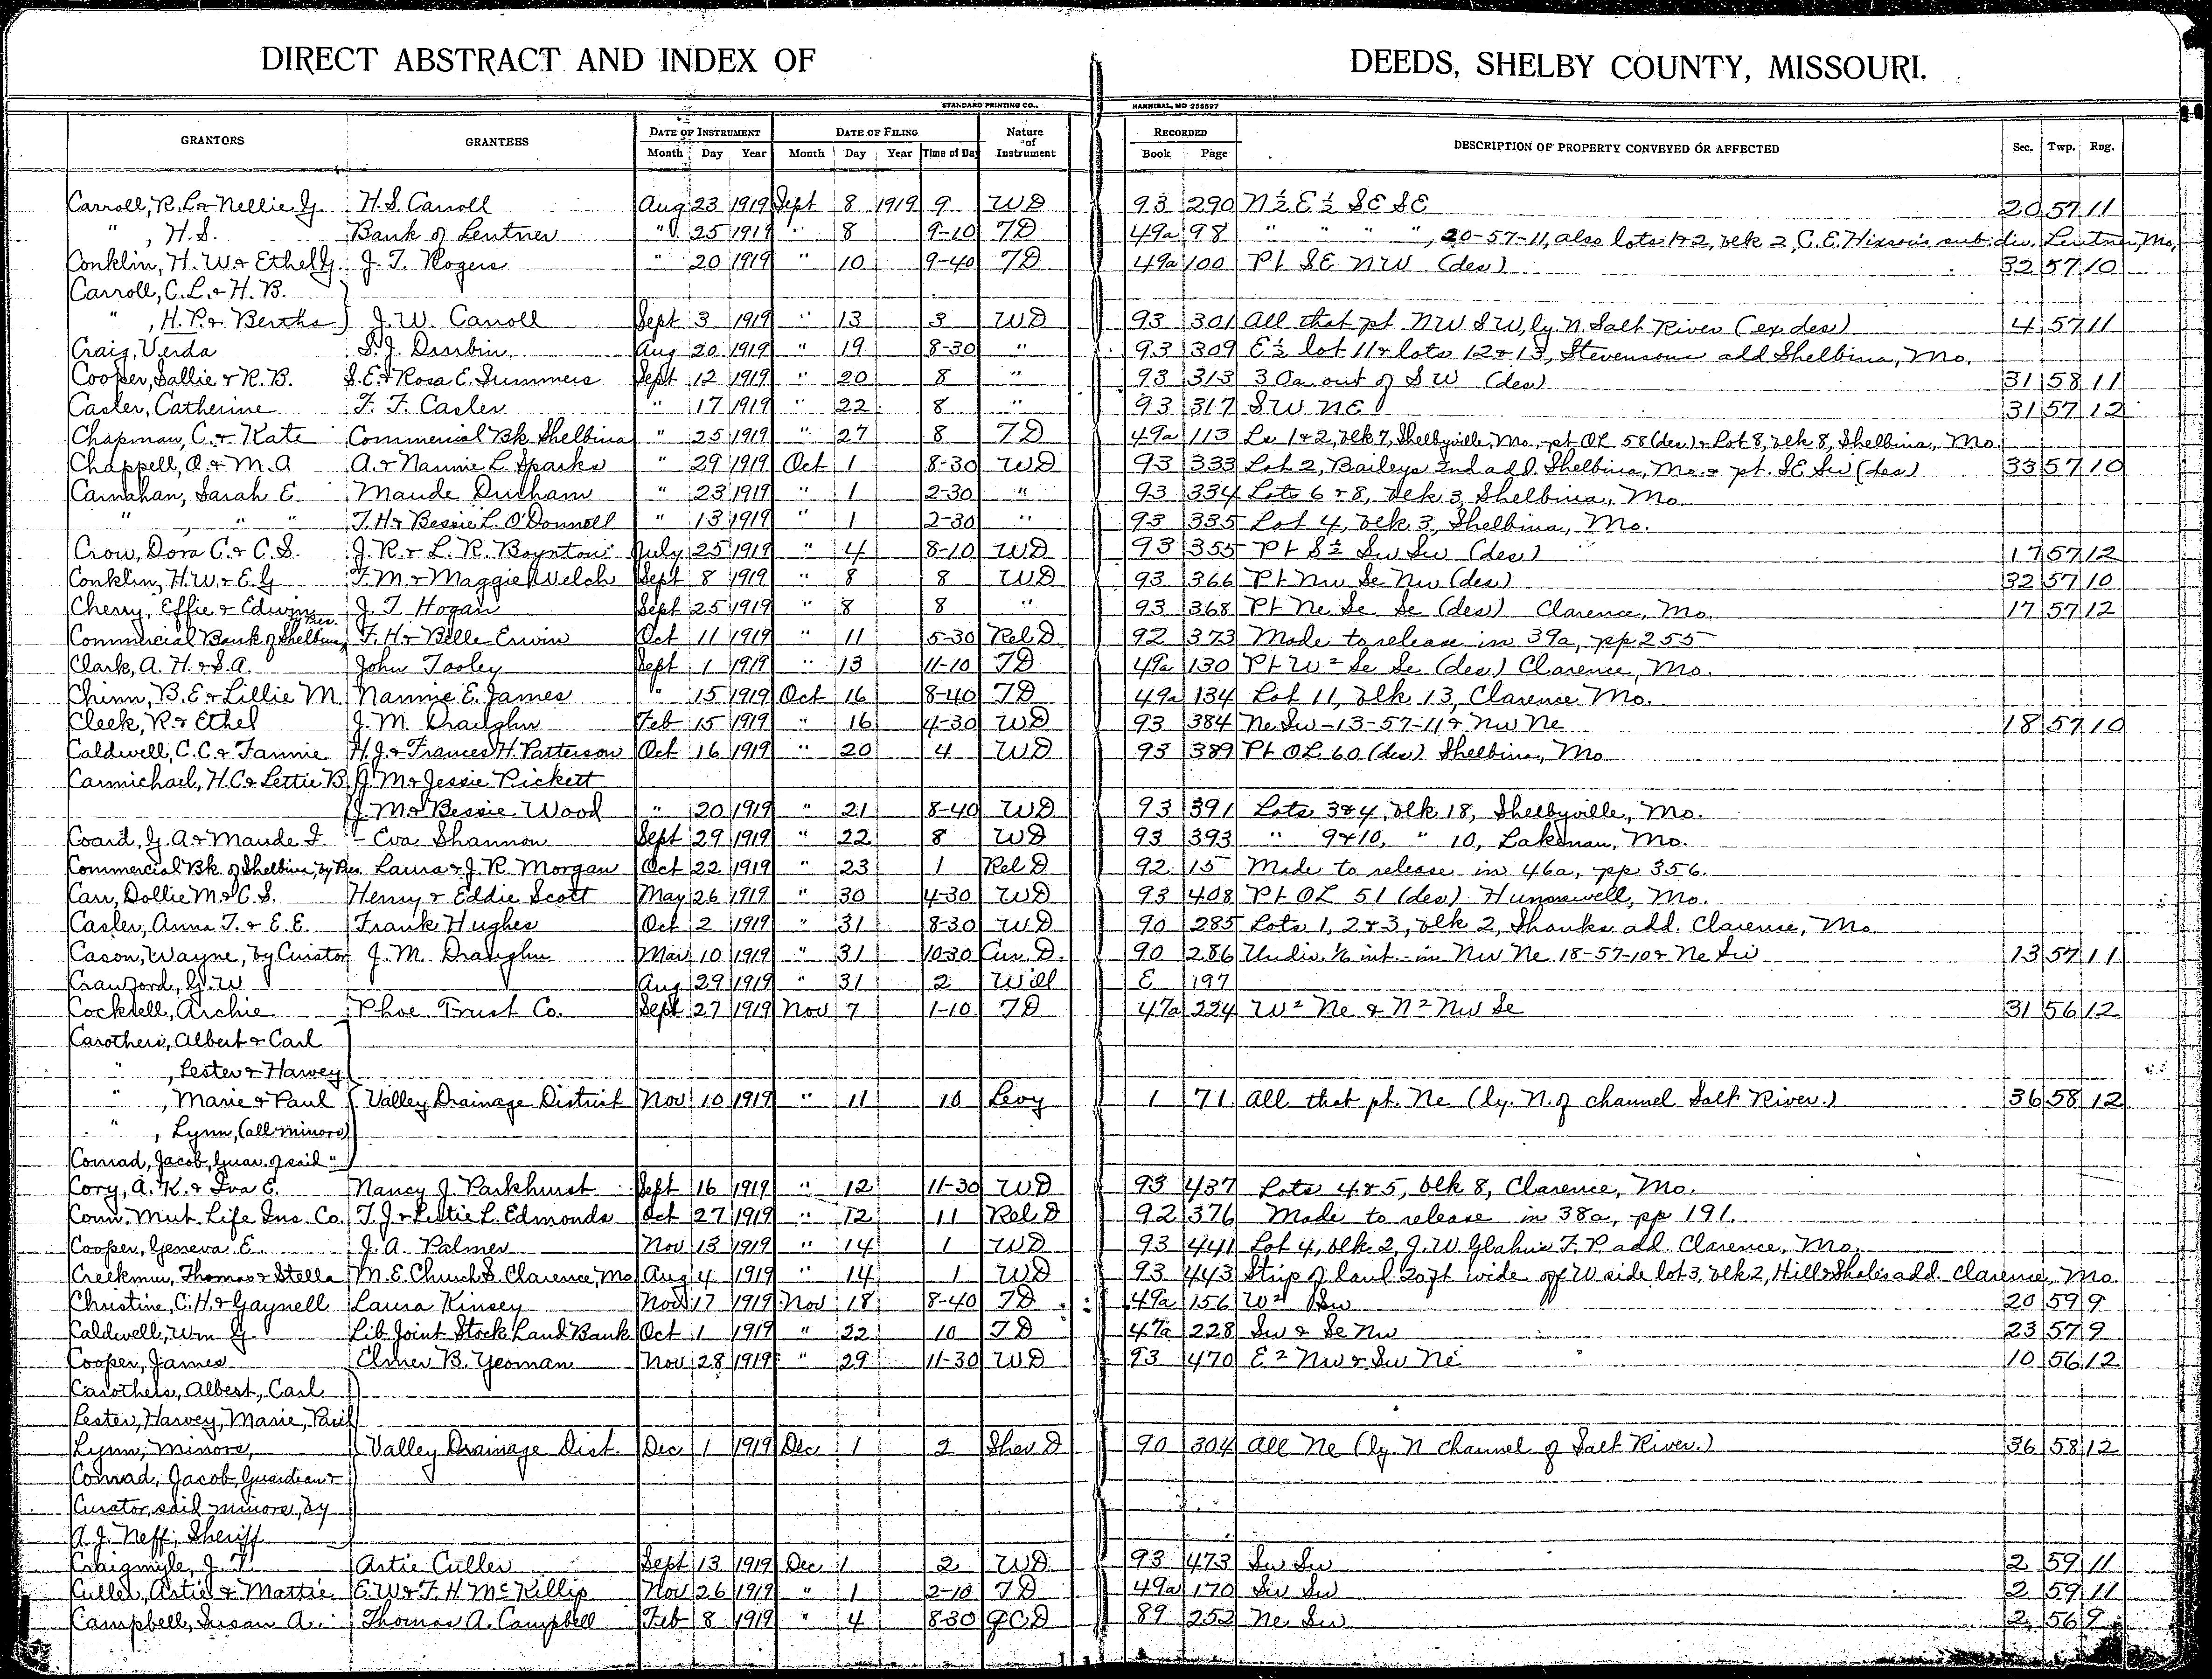 DIRECT ABSTRACT AND INDEX OF DEEDS, SHELBY COUNTY, MISSOURI.
STANDARD PRINTING CO., HANNIBAL, MO 256697
GRANTORS GRANTEES DATE OF INSTRUMENT DATE OF FILING Nature of Instrument RECORDED DESCRIPTION OF PROPERTY CONVEYED OR AFFECTED Sec. Twp. Rng.
Month Day Year Month Day Year Time of Day Book Page
Carroll, R. L. & Nellie G. H. S. Carroll Aug 23 1919 Sept 8 1919 9 WD 93 290 N½ E½ SE SE 20 57 11
" , H. S. Bank of Lentner " 25 1919 " 8 9-10 TD 49a 98 " " " ", 20-57-11, also lots 1&2, blk 2, C. E. Hixon's sub div. Lentner, Mo.
Conklin, H. W. & Ethel G. J. T. Rogers " 20 1919 " 10 9-40 TD 49a 100 Pt SE NW (des) 32 57 10
Carroll, C. L. & H. B.
" , H. P. & Bertha J. W. Carroll Sept 3 1919 " 13 3 WD 93 301 All that pt NW SW, ly. N. Salt River (ex. des) 4 57 11
Craig, Verda S. J. Durbin Aug 20 1919 " 19 8-30 " 93 309 E½ lot 11 & lots 12 & 13, Stevensons add Shelbina, Mo.
Cooper, Sallie & R. B. S. E. & Rosa E. Summers Sept 12 1919 " 20 8 " 93 313 30a. out of SW (des) 31 58 11
Casler, Catherine F. F. Casler " 17 1919 " 22 8 " 93 317 SW NE 31 57 12
Chapman, C. & Kate Commercial Bk Shelbina " 25 1919 " 27 8 TD 49a 113 Ls 1&2, blk 7, Shelbyville, Mo., pt OL 58 (des) & Lot 8, blk 8, Shelbina, Mo.
Chappell, O. & M. A A. & Nannie L. Sparks " 29 1919 Oct 1 8-30 WD 93 333 Lot 2, Baileys 2nd add. Shelbina, Mo. & pt. SE SW (des) 33 57 10
Carnahan, Sarah E. Maude Durham " 23 1919 " 1 2-30 " 93 334 Lots 6 & 8, blk 3, Shelbina, Mo.
" , " " T. H. & Bessie L. O'Donnell " 13 1919 " 1 2-30 " 93 335 Lot 4, blk 3, Shelbina, Mo.
Crow, Dora C. & C. S. J. R. & L. R. Boynton July 25 1919 " 4 8-10 WD 93 355 Pt S½ Sw Sw (des) 17 57 12
Conklin, H. W. & E. G. F. M. & Maggie Welch Sept 8 1919 " 8 8 WD 93 366 Pt Nw Se Nw (des) 32 57 10
Cherry, Effie & Edwin J. T. Hogan Sept 25 1919 " 8 8 " 93 368 Pt Ne Se Se (des) Clarence, Mo. 17 57 12
Commercial Bank of Shelbina, by Pres. F. H. & Belle Erwin Oct 11 1919 " 11 5-30 Rel D 92 373 Made to release in 39a, pp 255
Clark, A. H. & S. A. John Tooley Sept 1 1919 " 13 11-10 TD 49a 130 Pt W² Se Se (des) Clarence, Mo.
Chinn, B. E. & Lillie M. Nannie E. James " 15 1919 Oct 16 8-40 TD 49a 134 Lot 11, blk 13, Clarence Mo.
Cleek, R. & Ethel J. M. Draughn Feb 15 1919 " 16 4-30 WD 93 384 Ne Sw-13-57-11 & Nw Ne 18 57 10
Caldwell, C. C. & Fannie H. J. & Frances H. Patterson Oct 16 1919 " 20 4 WD 93 389 Pt OL 60 (des) Shelbina, Mo
Carmichael, H. C. & Lettie B. J. M. & Jessie Pickett
J. M. & Bessie Wood " 20 1919 " 21 8-40 WD 93 391 Lots 3&4, blk 18, Shelbyville, Mo.
Coard, G. A. & Maude I. Eva Shannon Sept 29 1919 " 22 8 WD 93 393 " 9&10, " 10, Lakenan, Mo.
Commercial Bk. of Shelbina, by Pres. Laura & J. R. Morgan Oct 22 1919 " 23 1 Rel D 92 15 Made to release in 46a, pp 356.
Carr, Dollie M. & C. S. Henry & Eddie Scott May 26 1919 " 30 4-30 WD 93 408 Pt OL 51 (des) Hunnewell, Mo.
Casler, Anna T. & E. E. Frank Hughes Oct 2 1919 " 31 8-30 WD 90 285 Lots 1, 2 & 3, blk 2, Shanks add. Clarence, Mo
Cason, Wayne, by Curator J. M. Draughn Mar 10 1919 " 31 10-30 Cur. D. 90 286 Undiv. 1/6 int. in Nw Ne 18-57-10 & Ne Sw 13 57 11
Crawford, G. W Aug 29 1919 " 31 2 Will E 197
Cockrell, Archie Phoe. Trust Co. Sept 27 1919 Nov 7 1-10 TD 47a 224 W² Ne & N² Nw Se 31 56 12
Carothers, Albert & Carl
" , Lester & Harvey
" , Marie & Paul Valley Drainage District Nov 10 1919 " 11 10 Levy 1 71 All that pt. Ne (ly. N. of channel Salt River.) 36 58 12
" , Lynn, (all minors)
Conrad, Jacob, Guar. of said "
Cory, A. K. & Iva E. Nancy J. Parkhurst Sept 16 1919 " 12 11-30 WD 93 437 Lots 4&5, blk 8, Clarence, Mo.
Conn. Mut. Life Ins. Co. T. J. & Lestie L. Edmonds Oct 27 1919 " 12 11 Rel D 92 376 Made to release in 38a, pp 191.
Cooper, Geneva E. J. A. Palmer Nov 13 1919 " 14 1 WD 93 441 Lot 4, blk 2, J. W. Glahn's F. P. add. Clarence, Mo.
Creekmur, Thomas & Stella M. E. Church S. Clarence, Mo Aug 4 1919 " 14 1 WD 93 443 Strip of land 20 ft wide off W side lot 3, blk 2, Hill & Sholes add. Clarence, Mo
Christine, C. H. & Gaynell Laura Kinsey Nov 17 1919 Nov 18 8-40 TD 49a 156 W² Sw 20 59 9
Caldwell, Wm G. Lib Joint Stock Land Bank Oct 1 1919 " 22 10 TD 47a 228 Sw & Se Nw 23 57 9
Cooper, James Elmer B. Yeoman Nov 28 1919 " 29 11-30 WD 93 470 E² Nw & Sw Ne 10 56 12
Carothers, Albert, Carl
Lester, Harvey, Marie, Paul
Lynn, minors, Valley Drainage Dist. Dec 1 1919 Dec 1 2 Sher D 90 304 All Ne (ly. N channel of Salt River.) 36 58 12
Conrad, Jacob, Guardian &
Curator, said minors, by
A. J. Neff, Sheriff
Craigmyle, J. T. Artie Culler Sept 13 1919 Dec 1 2 WD 93 473 Sw Sw 2 59 11
Culler, Artie & Mattie E. W. & F. H. McKillip Nov 26 1919 " 1 2-10 TD 49a 170 Sw Sw 2 59 11
Campbell, Susan A. Thomas A. Campbell Feb 8 1919 " 4 8-30 QCD 89 252 Ne Sw 2 56 9